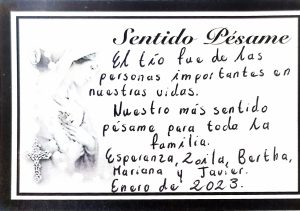 Sentido Pésame
El tío fue de las
personas importantes en
nuestras vidas.
Nuestro más sentido
pésame para toda la
familia.
Esperanza, Zoila, Bertha,
Mariana y Javier.
Enero de 2023.